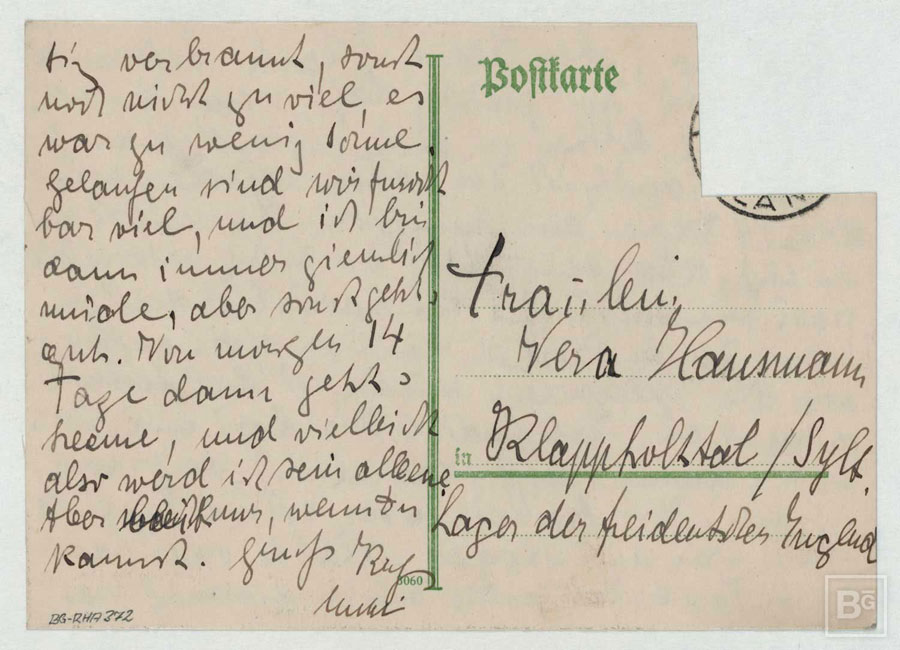 tig verbrannt, sonst
noch nicht zu viel, es
war zu wenig Sonne.
Gelaufen sind wir furcht
bar viel, und ich bin
dann immer ziemlich
müde, aber sonst geht's
gut. Von morgen 14
Tage dann geht's
heeme, und vielleicht
also werd ich sein alleene
Aber nur, wenn Du
kannst. Gruß
Postkarte
LAN
Fräulein
Vera Hausmann
in Klappholttal / Sylt
Lager der freideutschen Jugend
3060
BG-RHA 372
BG